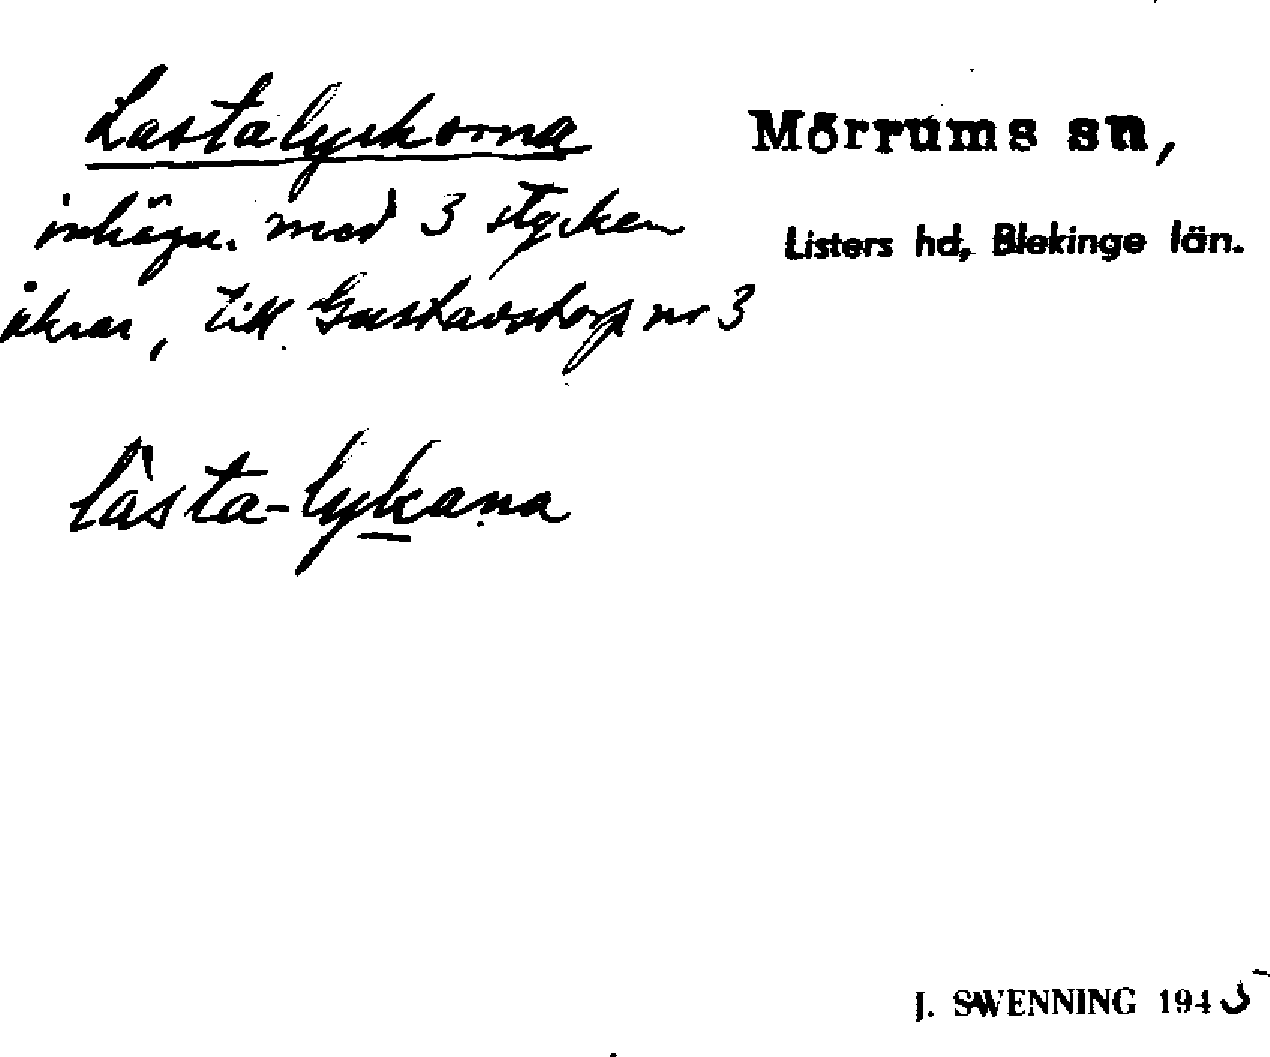 Lastalyckorna
Mörrums sn,
inhägn. med 3 stycken
Listers hd, Blekinge län.
åkrar, till Gustavstorp nr 3
làsta-lykana
J. SWENNING 1945